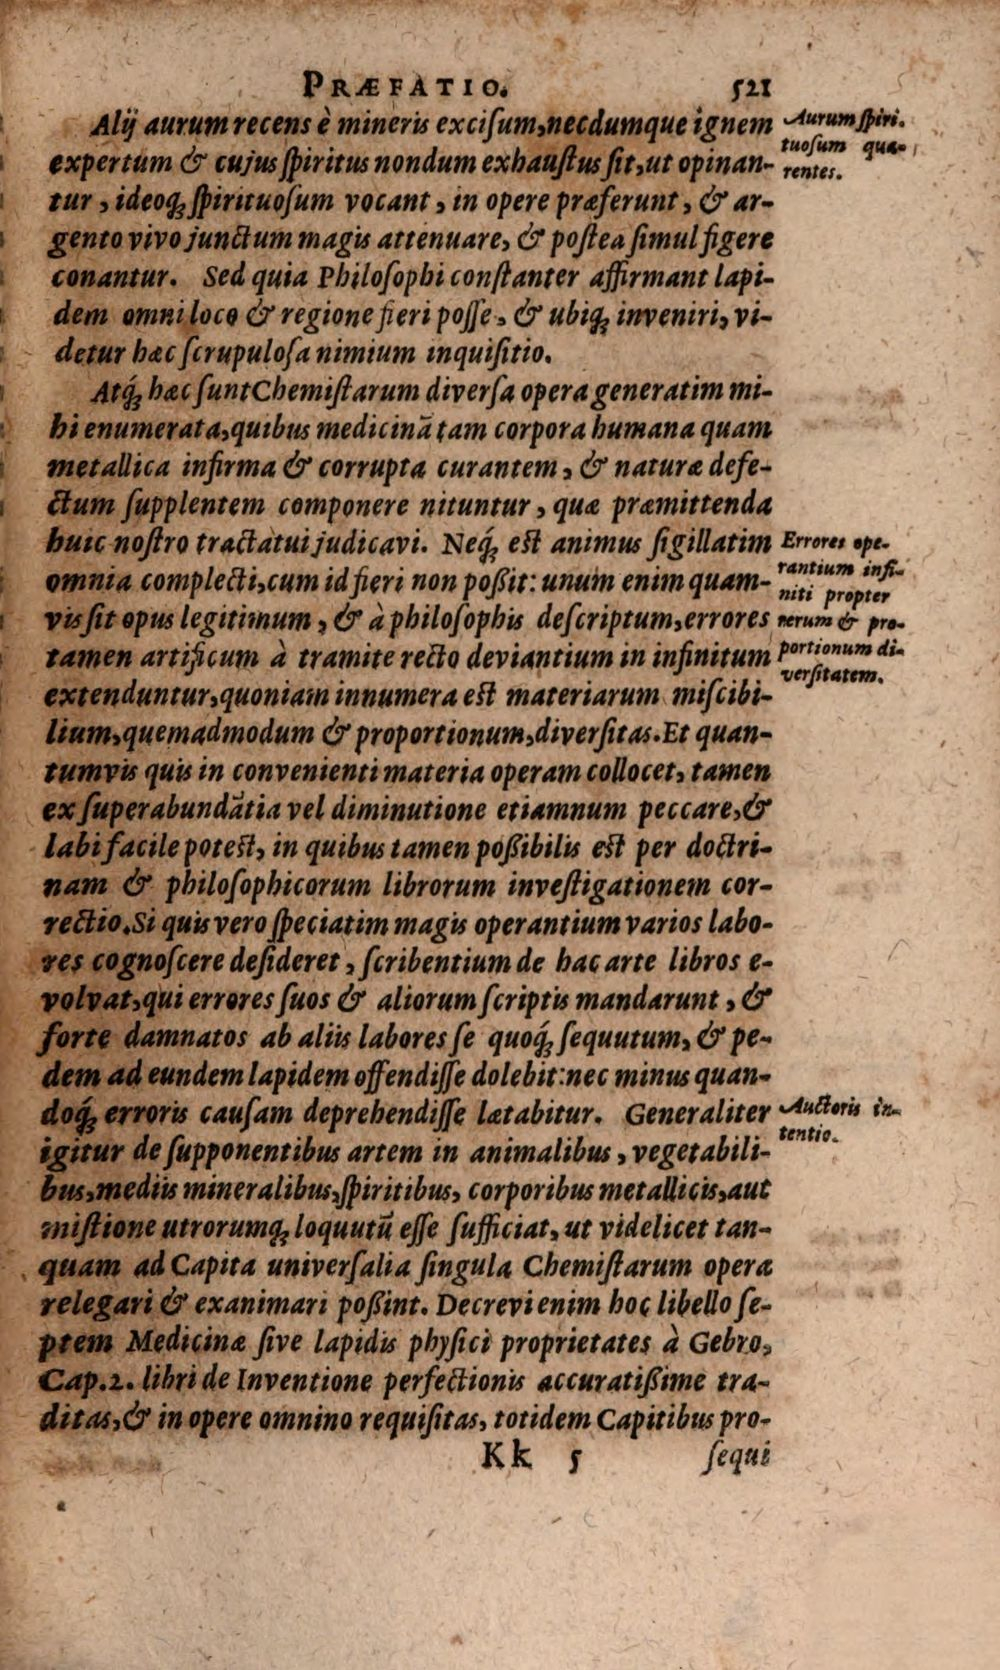 PRÆFATIO. 521
Alij aurum recens è mineris exciſum, necdumque ignem
expertum & cujus ſpiritus nondum exhauſtus ſit, ut opinan-
tur, ideoq́ ſpirituoſum vocant, in opere præferunt, & ar-
gento vivo junctum magis attenuare, & poſtea ſimul figere
conantur. Sed quia Philoſophi conſtanter affirmant lapi-
dem omni loco & regione fieri poſſe, & ubiq́ inveniri, vi-
detur hæc ſcrupuloſa nimium inquiſitio.
Aurum ſpiri-
tuoſum quæ-
rentes.
Atq́ hæc ſunt Chemiſtarum diverſa opera generatim mi-
hi enumerata, quibus medicinã tam corpora humana quam
metallica infirma & corrupta curantem, & naturæ defe-
ctum ſupplentem componere nituntur, quæ præmittenda
huic noſtro tractatui judicavi. Neq́ eſt animus ſigillatim
omnia complecti, cum id fieri non poßit: unum enim quam-
vis ſit opus legitimum, & à philoſophis deſcriptum, errores
tamen artificum à tramite recto deviantium in infinitum
extenduntur, quoniam innumera eſt materiarum miſcibi-
lium, quemadmodum & proportionum, diverſitas. Et quan-
tumvis quis in convenienti materia operam collocet, tamen
ex ſuperabundãtia vel diminutione etiamnum peccare, &
labi facile poteſt, in quibus tamen poßibilis eſt per doctri-
nam & philoſophicorum librorum inveſtigationem cor-
rectio. Si quis vero ſpeciatim magis operantium varios labo-
res cognoſcere deſideret, ſcribentium de hac arte libros e-
volvat, qui errores ſuos & aliorum ſcriptis mandarunt, &
forte damnatos ab aliis labores ſe quoq́ ſequutum, & pe-
dem ad eundem lapidem offendiſſe dolebit: nec minus quan-
doq́ erroris cauſam deprehendiſſe lætabitur. Generaliter
igitur de ſupponentibus artem in animalibus, vegetabili-
bus, mediis mineralibus, ſpiritibus, corporibus metallicis, aut
miſtione utrorumq́ loquutũ eſſe ſufficiat, ut videlicet tan-
quam ad Capita univerſalia ſingula Chemiſtarum opera
relegari & exanimari poßint. Decrevi enim hoc libello ſe-
ptem Medicinæ ſive lapidis phyſici proprietates à Gebro,
Cap. 2. libri de Inventione perfectionis accuratißime tra-
ditas, & in opere omnino requiſitas, totidem Capitibus pro-
Errores ope-
rantium infi-
niti propter
rerum & pro-
portionum di-
verſitatem.
Auctoris in-
tentio.
Kk 5 ſequi